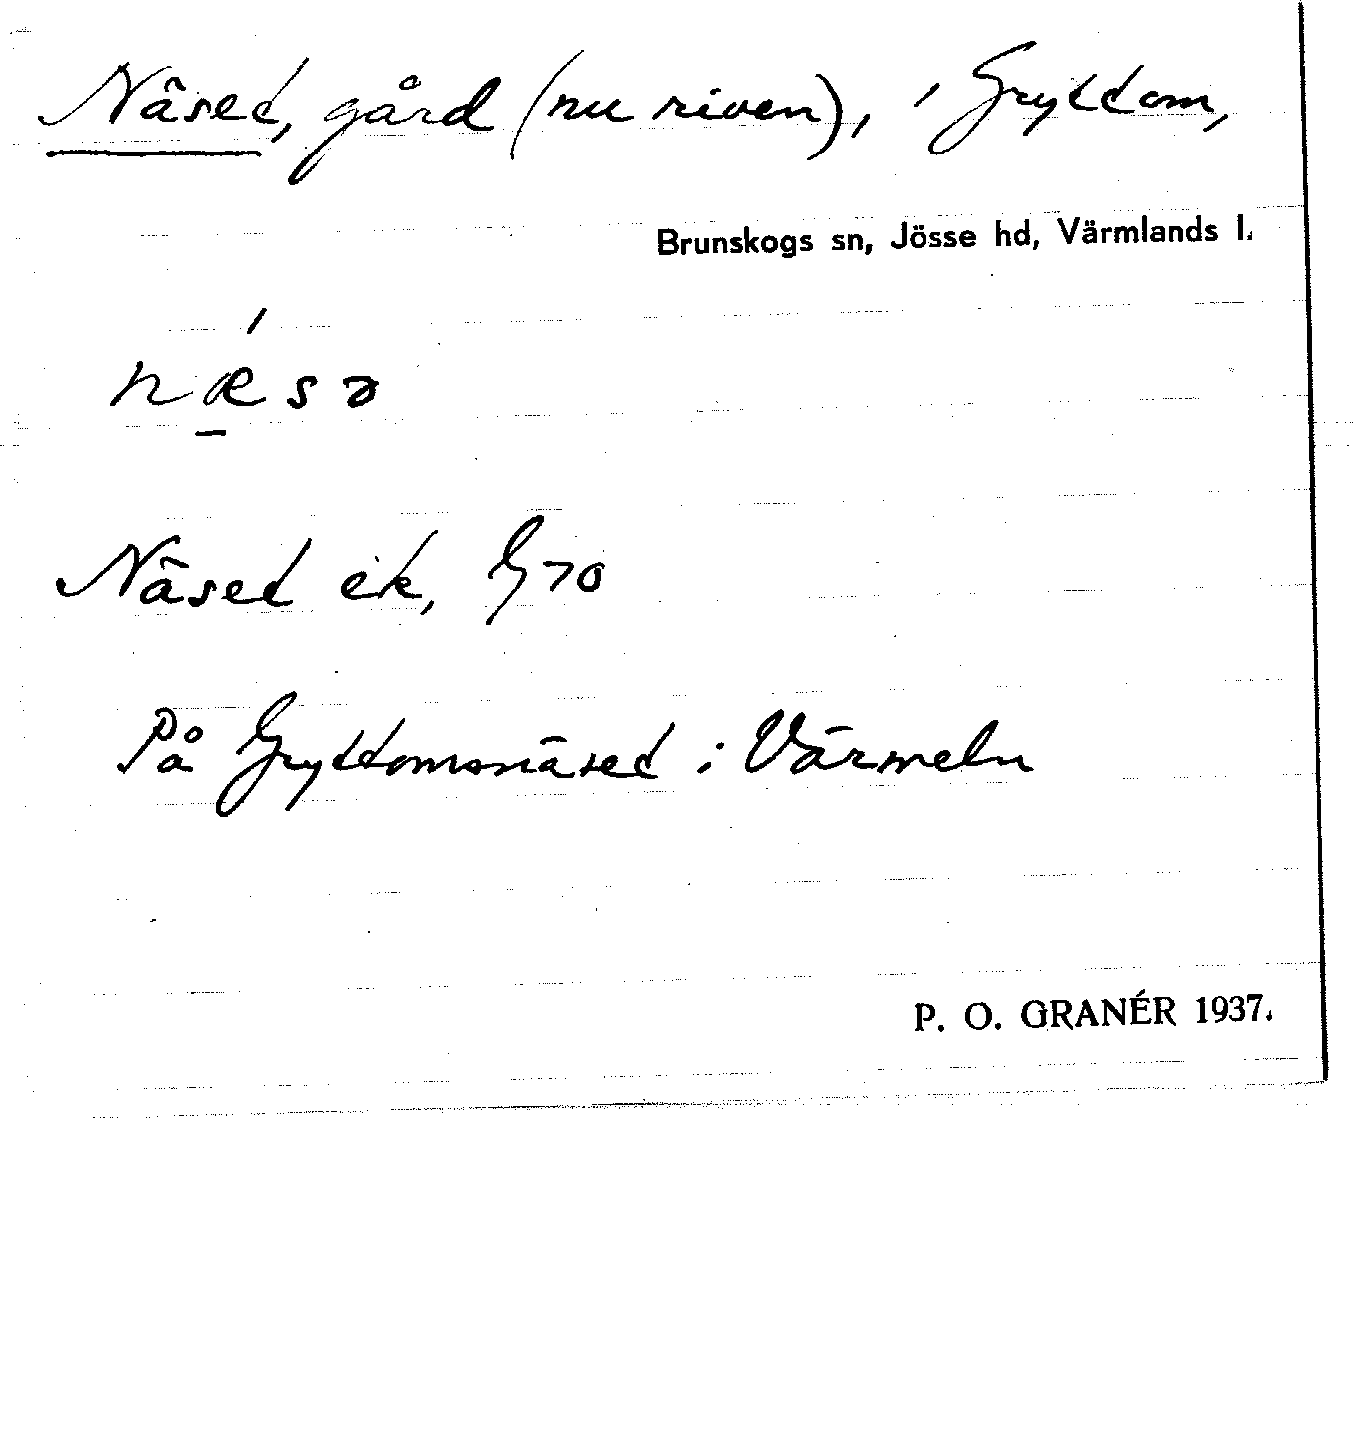 Näset, gård (nu riven), i Gryttom,
Brunskogs sn, Jösse hd, Värmlands l.
nǽsə
Näset ek, G 70
På Gryttomsnäset i Värmeln
P. O. GRANÉR 1937.